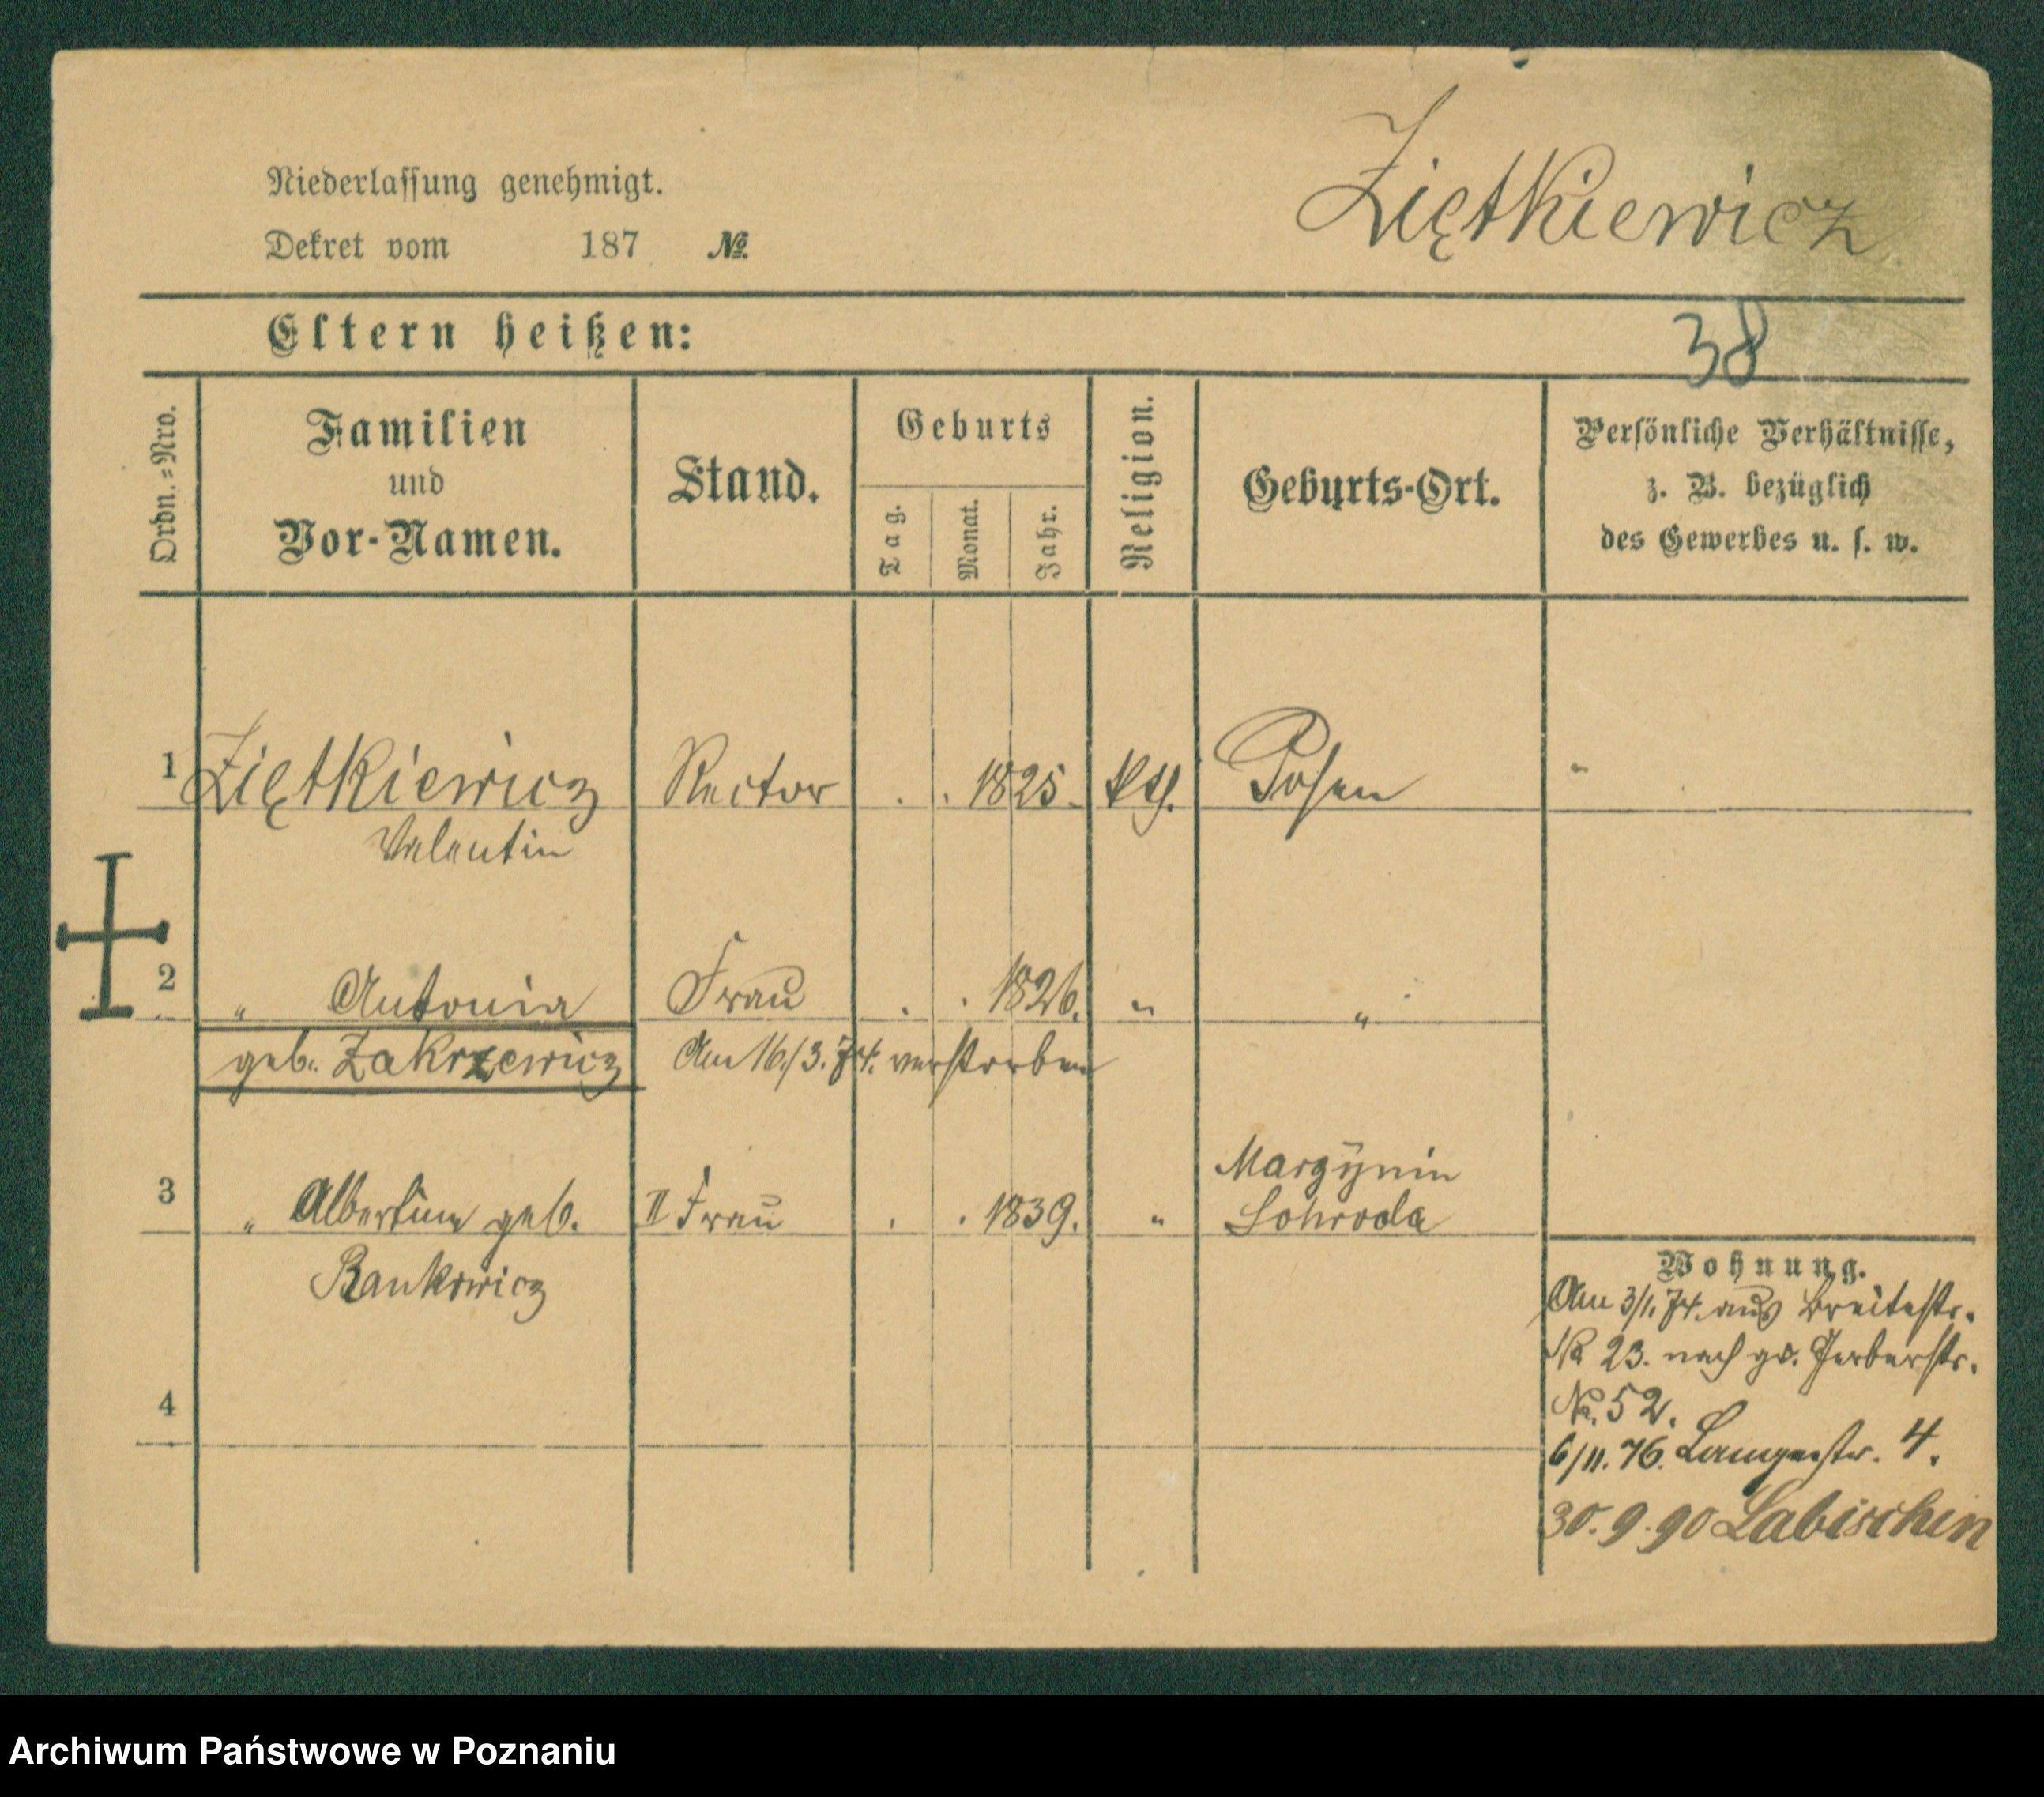 Niederlassung genehmigt.
Dekret vom 187 №
Ziętkiewicz
Eltern heißen:
38
Ordn.=Nro.
Familien
und
Vor-Namen.
Stand.
Geburts
Tag.
Monat.
Jahr.
Religion.
Geburts-Ort.
Persönliche Verhältnisse,
z. B. bezüglich
des Gewerbes u. s. w.
1 Ziętkiewicz Rector . . 1825. kth. Posen "
Valentin
2 " Antonia Frau . . 1826. " "
geb. Zakrzewicz Am 16/3. 74. verstorben
3 " Albertine geb. II Frau . . 1839. "
Bankiewicz
4
Wohnung.
Am 3/1. 74. aus Breitestr.
№ 23. nach gr. Gerberstr.
№. 52.
6/11. 76. Langestr. 4.
30. 9. 90 Labischin
Archiwum Państwowe w Poznaniu